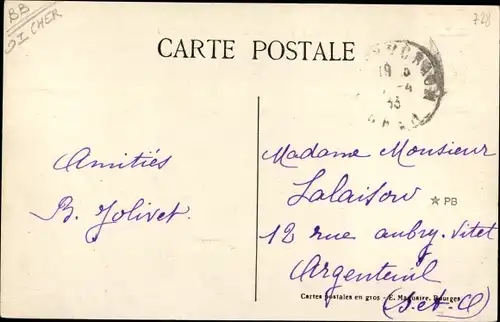 BB
CHER
728
CARTE POSTALE
19
-4
33
Amitiés
B. Jolivet
Madame Monsieur
Lalaison
★ PB
12 rue aubry-Vitet
Argenteuil
(S-et-O)
Cartes postales en gros - E. Maquaire, Bourges